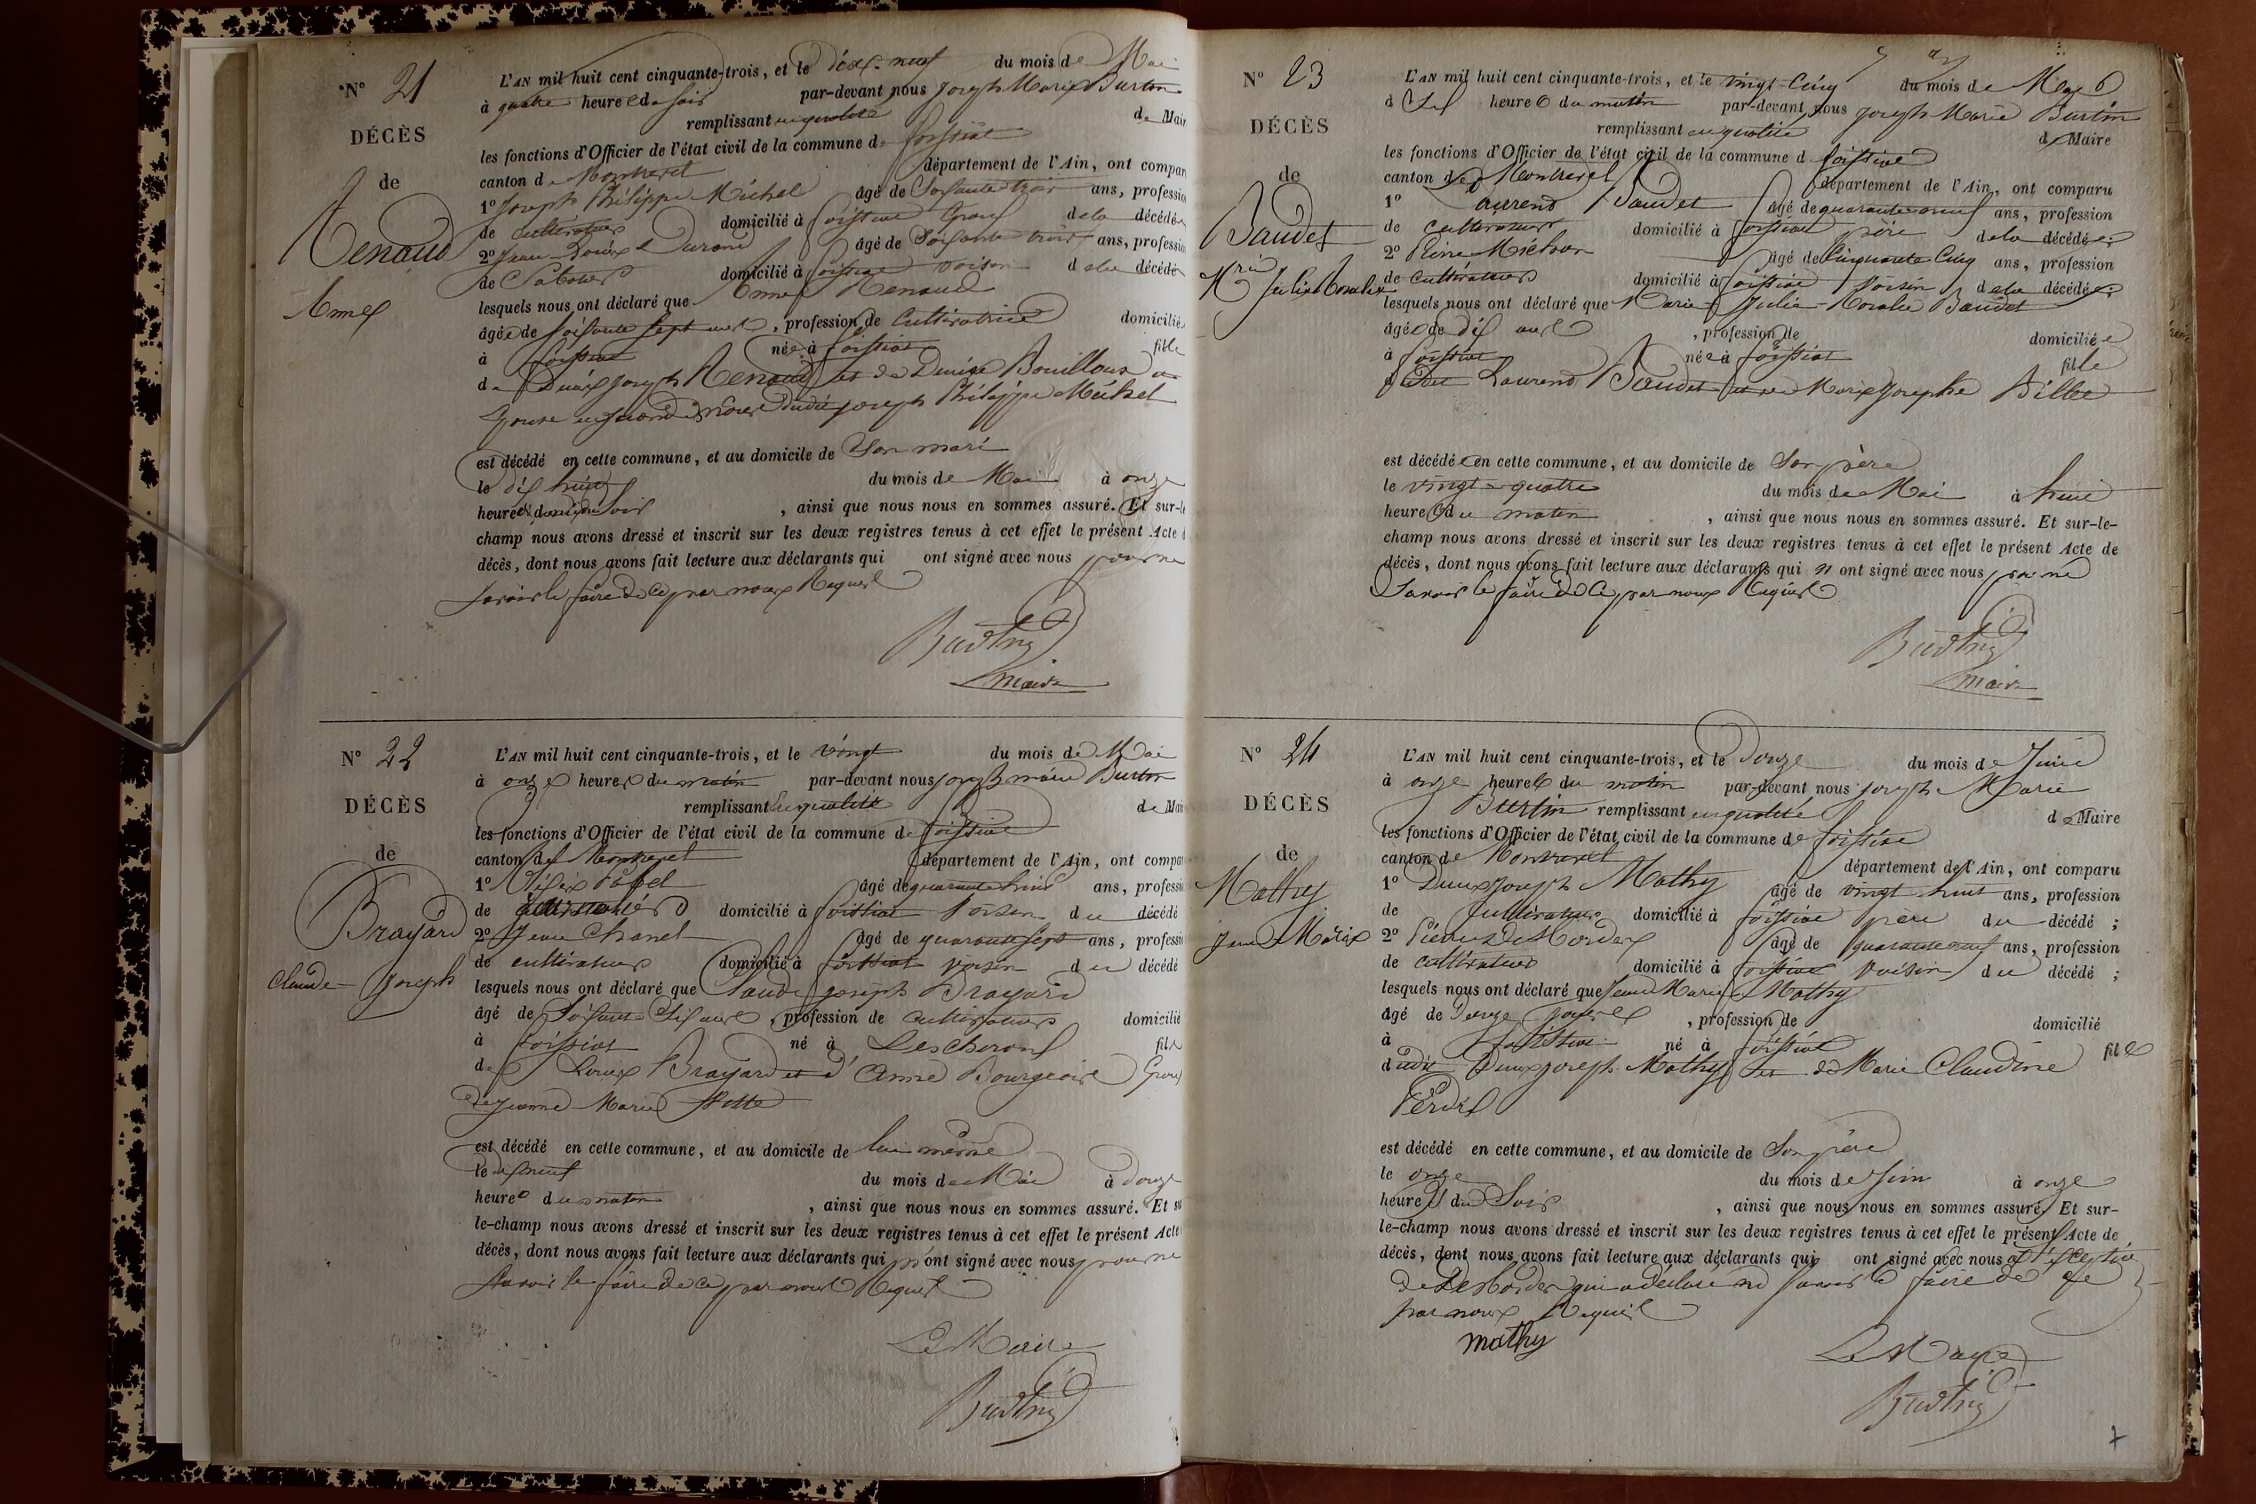 N° 21
DÉCÈS
de
Renaud
Anne
L'AN mil huit cent cinquante-trois, et le dix-neuf du mois de Mai
à quatre heures du soir par-devant nous Joseph Marie Burtin
remplissant en qualité de Maire
les fonctions d'Officier de l'état civil de la commune de foissiat
canton de Montrevel département de l'Ain, ont compar
1° Joseph Philippe Michel âgé de soixante trois ans, profession
de cultivateur domicilié à foissiat de la décédée
2° Jean Louis Durand âgé de soixante trois ans, profession
de Sabotier domicilié à foissiat voisin de la décédée
lesquels nous ont déclaré que Anne Renaud
âgée de soixante sept ans, profession de cultivatrice domiciliée
à foissiat née à foissiat fille
de Denis Joseph Renaud et de Denise Bouilloux
en secondes noces dudit Joseph Philippe Michel
est décédé en cette commune, et au domicile de son mari
le dix huit du mois de Mai à onze
heures du soir, ainsi que nous nous en sommes assuré. Et sur-le
champ nous avons dressé et inscrit sur les deux registres tenus à cet effet le présent Acte d
décès, dont nous avons fait lecture aux déclarants qui ont signé avec nous pour ne
savoir le faire de ce par nous Requis
Burtin
maire
N° 22
DÉCÈS
de
Brayard
Claude Joseph
L'AN mil huit cent cinquante-trois, et le vingt du mois de Mai
à onze heures du matin par-devant nous joseph marie Burtin
remplissant en qualité de Mai
les fonctions d'Officier de l'état civil de la commune de foissiat
canton de Montrevel département de l'Ain, ont compar
1° âgé de quarante huit ans, profession
de domicilié à foissiat voisin du décédé
2° Jean Chanel âgé de quarante sept ans, profession
de cultivateur domicilié à foissiat voisin du décédé
lesquels nous ont déclaré que Claude joseph Brayard
âgé de soixante dix ans, profession de cultivateur domicilié
à foissiat né à Lescheroux fils
de Louis Brayard et d'Anne Bourgeois
de jeanne Marie
est décédé en cette commune, et au domicile de lui même
le dix neuf du mois de Mai à douze
heures du matin, ainsi que nous nous en sommes assuré. Et su
le-champ nous avons dressé et inscrit sur les deux registres tenus à cet effet le présent Acte
décès, dont nous avons fait lecture aux déclarants qui n'ont signé avec nous pour ne
savoir le faire de ce par nous Requis
Le Maire
Burtin
N° 23
DÉCÈS
de
Baudet
Mrie Julie Rosalie
L'AN mil huit cent cinquante-trois, et le vingt-cinq du mois de Mai
à six heures du matin par-devant nous joseph Marie Burtin
remplissant en qualité de Maire
les fonctions d'Officier de l'état civil de la commune de foissiat
canton de Montrevel département de l'Ain, ont comparu
1° Laurend Baudet âgé de quarante neuf ans, profession
de cultivateur domicilié à foissiat père de la décédée;
2° Pierre Michon âgé de cinquante cinq ans, profession
de cultivateur domicilié à foissiat voisin de la décédée;
lesquels nous ont déclaré que Marie Julie Rosalie Baudet
âgée de dix ans, profession de domiciliée
à foissiat née à foissiat fille
dudit Laurend Baudet et de Marie Josephe Billet
est décédée en cette commune, et au domicile de son père
le vingt-quatre du mois de Mai à huit
heures du matin, ainsi que nous nous en sommes assuré. Et sur-le-
champ nous avons dressé et inscrit sur les deux registres tenus à cet effet le présent Acte de
décès, dont nous avons fait lecture aux déclarants qui n'ont signé avec nous pour ne
savoir le faire de ce par nous Requis
Burtin
maire
N° 24
DÉCÈS
de
Mathy
jean Marie
L'AN mil huit cent cinquante-trois, et le Douze du mois de Juin
à onze heures du matin par-devant nous joseph Marie
Burtin remplissant en qualité de Maire
les fonctions d'Officier de l'état civil de la commune de foissiat
canton de Montrevel département de l'Ain, ont comparu
1° Denis joseph Mathy âgé de vingt huit ans, profession
de cultivateur domicilié à foissiat père du décédé;
2° Pierre Desbordes âgé de quarante neuf ans, profession
de cultivateur domicilié à foissiat voisin du décédé;
lesquels nous ont déclaré que Jean Marie Mathy
âgé de Douze jours, profession de domicilié
à foissiat né à foissiat fils
dudit Denis joseph Mathy et de Marie Claudine
Perdrix
est décédé en cette commune, et au domicile de son père
le onze du mois de Juin à onze
heures du soir, ainsi que nous nous en sommes assuré. Et sur-
le-champ nous avons dressé et inscrit sur les deux registres tenus à cet effet le présent Acte de
décès, dont nous avons fait lecture aux déclarants qui ont signé avec nous
de Desbordes qui a déclaré ne savoir le faire de ce
par nous Requis
mathy
Le Maire
Burtin